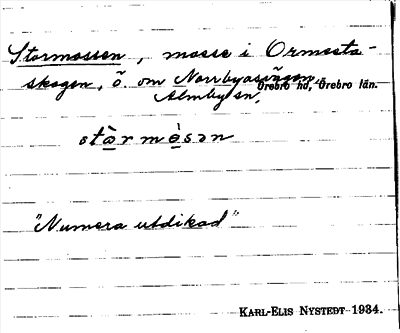 Stormossen, mosse i Ormesta-
skogen, ö. om Norrbyåsängen,
Almby sn, Örebro hd, Örebro län.
stàrmòsən
"Numera utdikad"
KARL-ELIS NYSTEDT 1934.